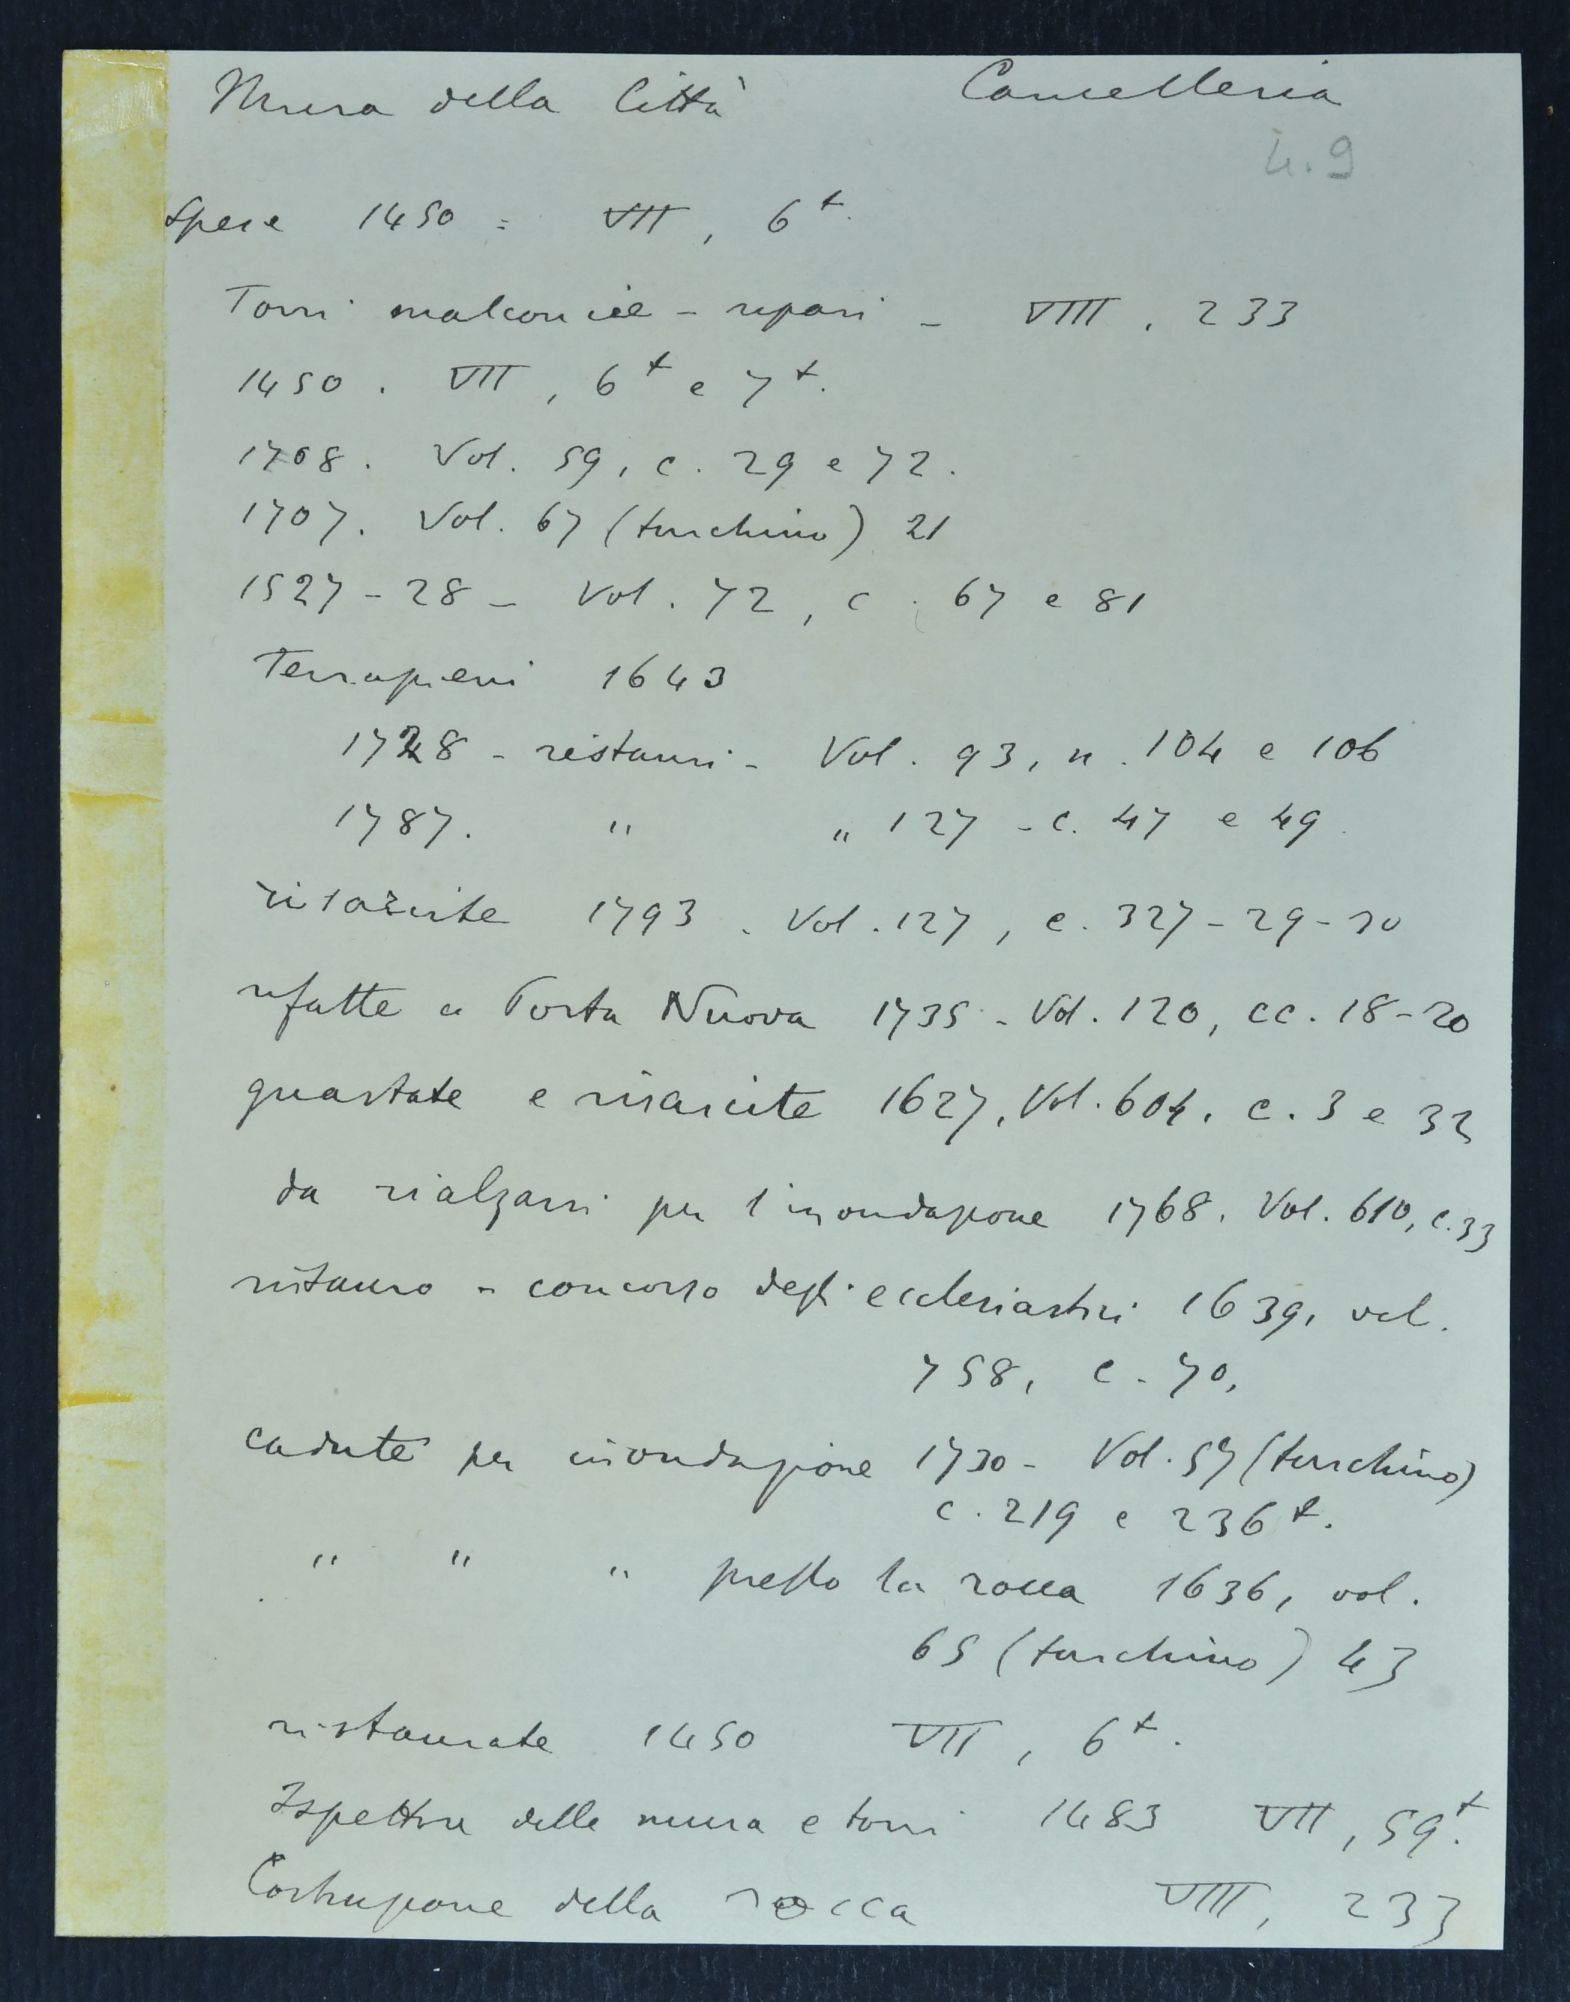 Mura della Città Cancelleria
4.9
Spese 1450 = VII, 6t.
Torri malconcie - ripari - VIII, 233
1450. VII, 6t e 7t.
1708. Vol. 59, c. 29 e 72.
1707. Vol. 67 (turchino) 21
1527-28 - Vol. 72, c. 67 e 81
Terrapieni 1643
1728 - restauri - Vol. 93, n. 104 e 106
1787. " " 127 - c. 47 e 49.
risarcite 1793. Vol. 127, c. 327-29-30
rifatte a Porta Nuova 1735 - Vol. 120, cc. 18-20
guastate e risarcite 1627, Vol. 604, c. 3 e 32
da rialzarsi per l'inondazione 1768. Vol. 610, c. 33
ristauro - concorso degli ecclesiastici 1639, vol.
758, c. 70,
cadute per inondazione 1730 - Vol. 57 (turchino)
c. 219 e 236t.
" " " presso la rocca 1636, vol.
65 (turchino) 43
ristaurate 1450 VII, 6t.
Ispettore delle mura e torri 1483 VII, 59t.
Costruzione della rocca VIII, 233